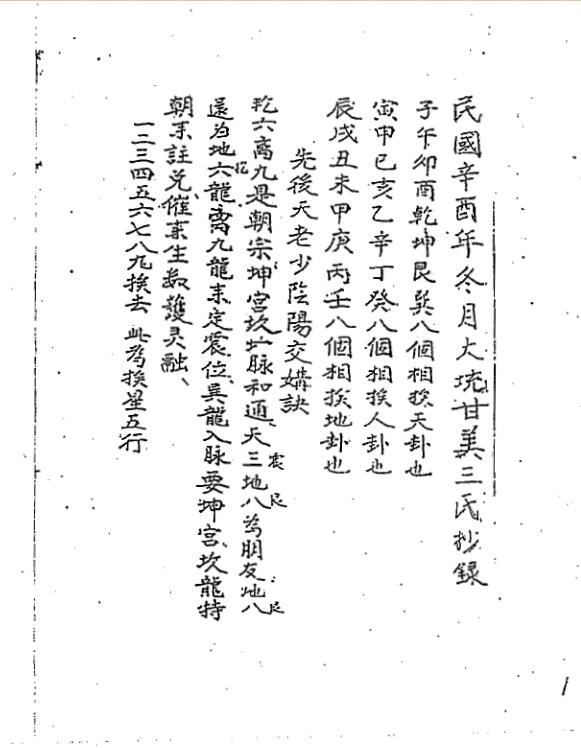 民國辛酉年冬月大坑甘美三氏抄錄
子午卯酉乾坤艮巽八個相挨天卦也
寅申巳亥乙辛丁癸八個相挨人卦也
辰戌丑未甲庚丙壬八個相挨地卦也
先後天老少陰陽交媾訣
乾六離九是朝宗坤宮坎脉和通天三震地八艮為朋友地八艮
還為地六乾龍離九龍來定震位巽龍入脉要坤宮坎龍特
朝來註兌催來生氣護灵融
一二三四五六七八九挨去 此為挨星五行
1